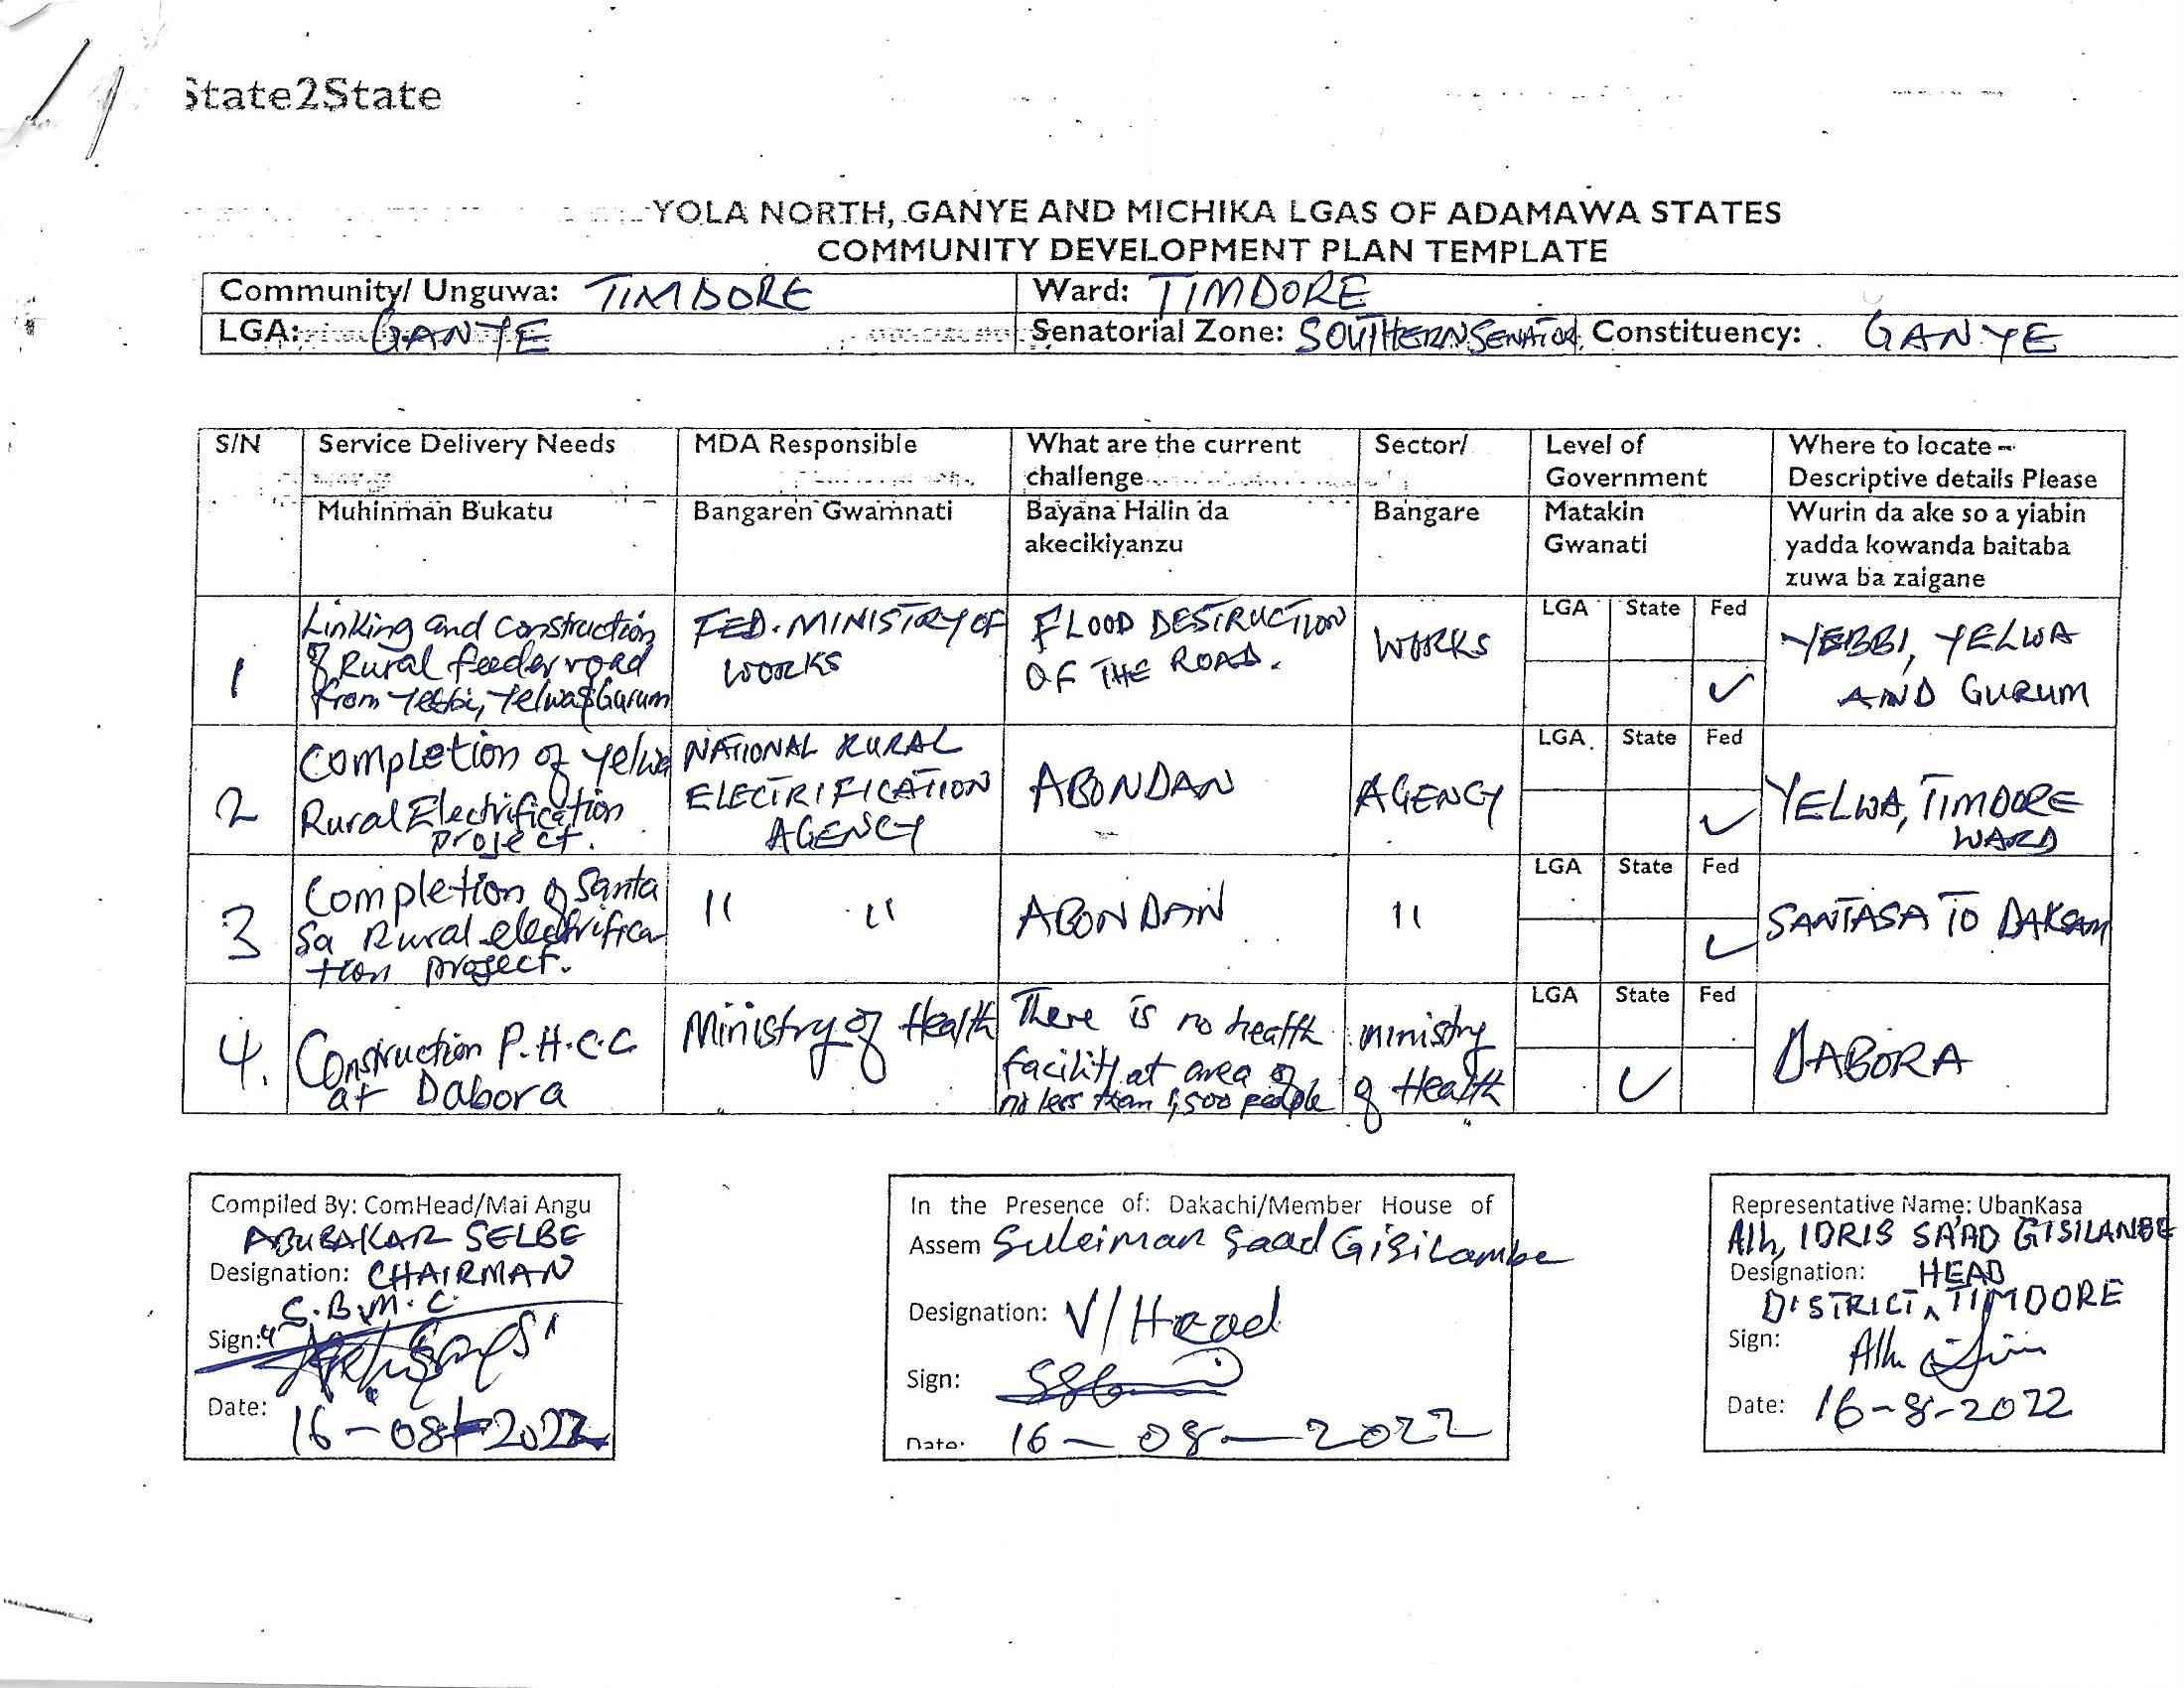 State2State
YOLA NORTH, GANYE AND MICHIKA LGAS OF ADAMAWA STATES
COMMUNITY DEVELOPMENT PLAN TEMPLATE
Community/ Unguwa: TIMDORE Ward: TIMDORE
LGA: GANYE Senatorial Zone: SOUTHERN SENATOR. Constituency: GANYE
S/N Service Delivery Needs MDA Responsible What are the current Sector/ Level of Where to locate –
challenge Government Descriptive details Please
Muhinman Bukatu Bangaren Gwamnati Bayana Halin da Bangare Matakin Wurin da ake so a yiabin
akecikiyanzu Gwanati yadda kowanda baitaba
zuwa ba zaigane
1
Linking and construction
of Rural feeder road
from Yebbi, Yelwa & Gurum
FED. MINISTRY OF
WORKS
FLOOD DESTRUCTION
OF THE ROAD.
WORKS
LGA State Fed
✓
YEBBI, YELWA
AND GURUM
2
Completion of Yelwa
Rural Electrification
project.
NATIONAL RURAL
ELECTRIFICATION
AGENCY
ABONDAN
AGENCY
LGA State Fed
✓
YELWA, TIMDORE
WARD
3
Completion of Santa
Sa Rural electrifica-
tion project.
" "
ABONDAN
"
LGA State Fed
✓
SANTASA TO DAKSAM
4.
Construction P.H.C.C
at Dabora
Ministry of Health
There is no health
facility at area of
no less than 1,500 people
ministry
of Health
LGA State Fed
✓
DABORA
Compiled By: ComHead/Mai Angu
ABUBAKAR SELBE
Designation: CHAIRMAN
S.B.M.C.
Sign:
Date: 16-08-2022
In the Presence of: Dakachi/Member House of
Assem Suleiman Saad Gisilambe
Designation: V/Head
Sign:
Date: 16-08-2022
Representative Name: UbanKasa
Alh, IDRIS SA'AD GISILANBE
Designation: HEAD
DISTRICT ^ TIMDORE
Sign:
Date: 16-8-2022